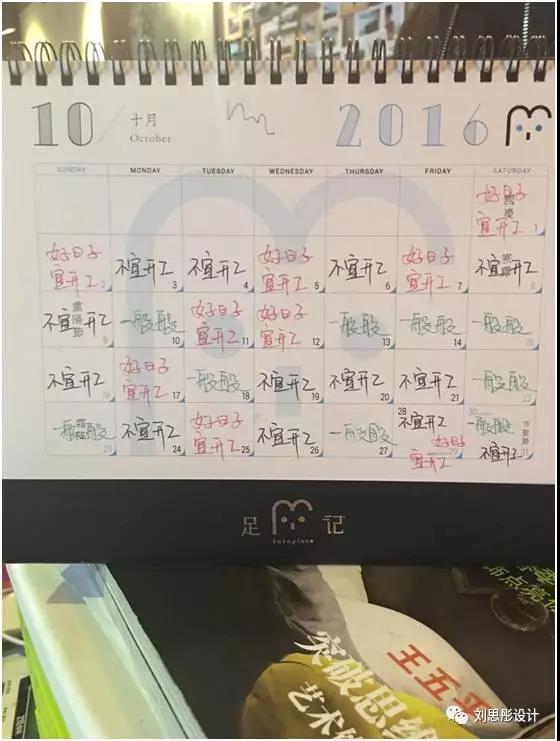 10 / 十月 October 2016
SUNDAY MONDAY TUESDAY WEDNESDAY THURSDAY FRIDAY SATURDAY
好日子
宜开工
國慶
1
好日子
宜开工 2
不宜开工 3
不宜开工 4
好日子
宜开工 5
不宜开工 6
好日子
宜开工 7
不宜开工
寒露
8
不宜开工
重陽節
9
一般般 10
好日子
宜开工 11
好日子
宜开工 12
一般般 13
一般般 14
一般般 15
不宜开工 16
好日子
宜开工 17
一般般 18
不宜开工 19
不宜开工 20
不宜开工 21
一般般 22
一般般
霜降
23
不宜开工 24
好日子
宜开工 25
不宜开工 26
一般般 27
28 不宜开工
好日子
宜开工 29
30 一般般
不宜开工 31
足 记
Fotoplace
点亮
王五
突破思维
艺术
刘思彤设计